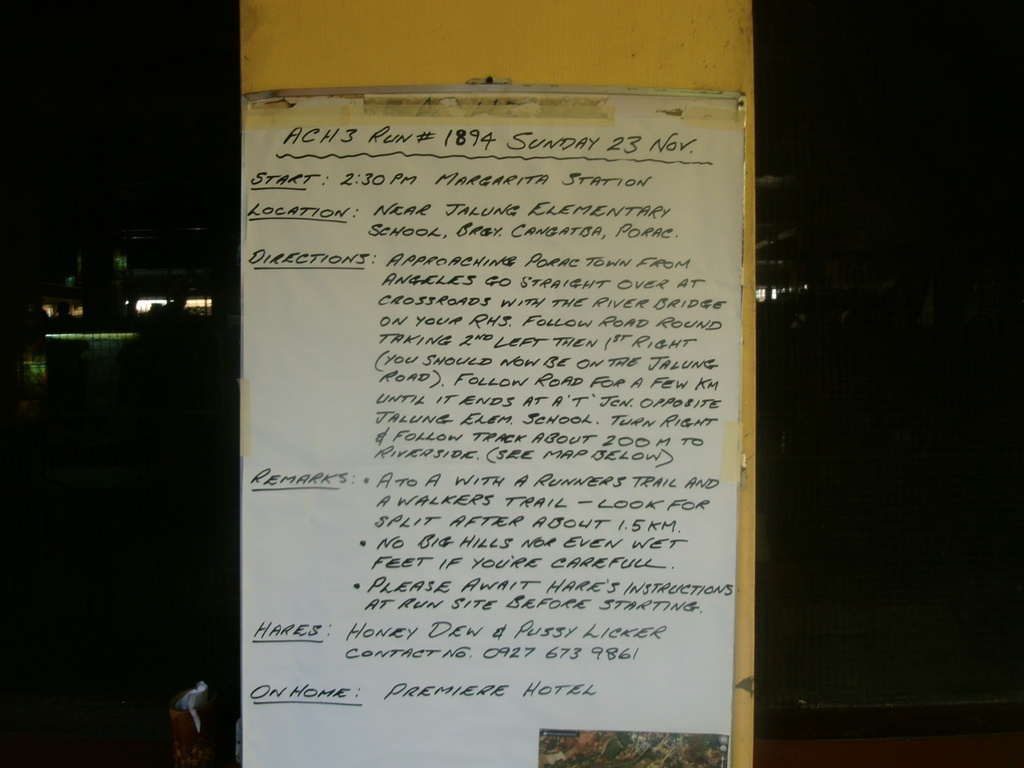 ACH3 RUN # 1894 SUNDAY 23 NOV.
START: 2:30 PM MARGARITA STATION
LOCATION: NEAR JALUNG ELEMENTARY
SCHOOL, BRGY. CANGATBA, PORAC.
DIRECTIONS: APPROACHING PORAC TOWN FROM
ANGELES GO STRAIGHT OVER AT
CROSSROADS WITH THE RIVER BRIDGE
ON YOUR RHS. FOLLOW ROAD ROUND
TAKING 2ND LEFT THEN 1ST RIGHT
(YOU SHOULD NOW BE ON THE JALUNG
ROAD). FOLLOW ROAD FOR A FEW KM
UNTIL IT ENDS AT A 'T' JCN. OPPOSITE
JALUNG ELEM. SCHOOL. TURN RIGHT
& FOLLOW TRACK ABOUT 200 M TO
RIVERSIDE. (SEE MAP BELOW)
REMARKS: • A TO A WITH A RUNNERS TRAIL AND
A WALKERS TRAIL – LOOK FOR
SPLIT AFTER ABOUT 1.5 KM.
• NO BIG HILLS NOR EVEN WET
FEET IF YOU'RE CAREFULL.
• PLEASE AWAIT HARE'S INSTRUCTIONS
AT RUN SITE BEFORE STARTING.
HARES: HONEY DEW & PUSSY LICKER
CONTACT NO. 0927 673 9861
ON HOME: PREMIERE HOTEL